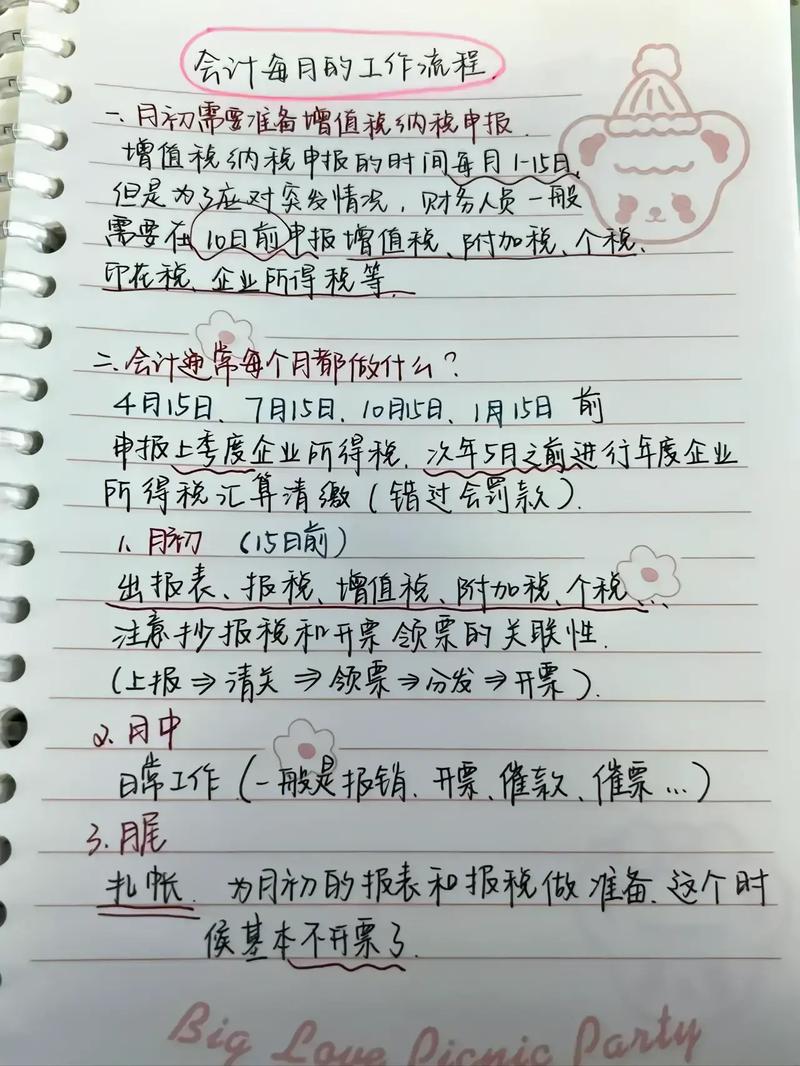 会计每月的工作流程.
一、月初需要准备增值税纳税申报.
增值税纳税申报的时间每月1-15日,
但是为了应对突发情况，财务人员一般
需要在10日前申报增值税、附加税、个税、
印花税、企业所得税等.
二.会计通常每个月都做什么？
4月15日、7月15日、10月15日、1月15日 前
申报上季度企业所得税，次年5月之前进行年度企业
所得税汇算清缴(错过会罚款).
1. 月初 (15日前)
出报表、报税、增值税、附加税、个税...
注意抄报税和开票领票的关联性.
(上报⇒清关⇒领票⇒分发⇒开票).
2. 月中
日常工作(一般是报销、开票、催款、催票...)
3. 月尾
扎帐. 为月初的报表和报税做准备.这个时
候基本不开票了.
Big Love Picnic Party